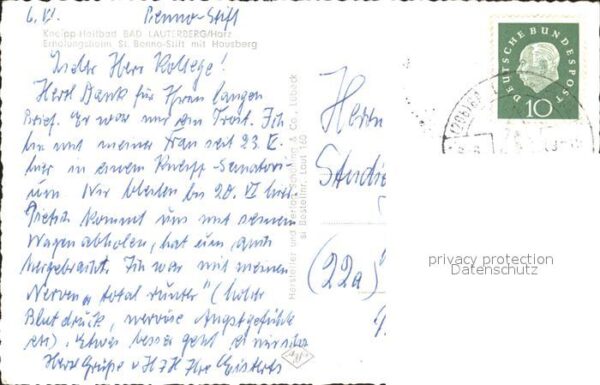 6. VI. Benno-Stift
Kneipp-Heilbad BAD LAUTERBERG/Harz
Erholungsheim St. Benno-Stift mit Hausberg
Herr Kollege!
Herzl Dank für Ihren langen
Brief. Er war mir ein Trost. Ich
bin mit meiner Frau seit 23. V.
hier in einem Kneipp-Sanatori-
um. Wir bleiben bis 20. VI hier
kommt uns mit seinem
Wagen abholen, hat uns auch
hergebracht. Ich war mit meinen
Nerven „total runter" (hoher
Blutdruck, nervöse Angstgefühle
etc). Etwas besser geht es mir schon
Herzl Grüße v H z H Ihr
Hersteller und Verlag Schöning & Co., Lübeck
Bestellnr. Laut 160
DEUTSCHE BUNDESPOST
10
Herrn
Studien
(22a)
privacy protection
Datenschutz